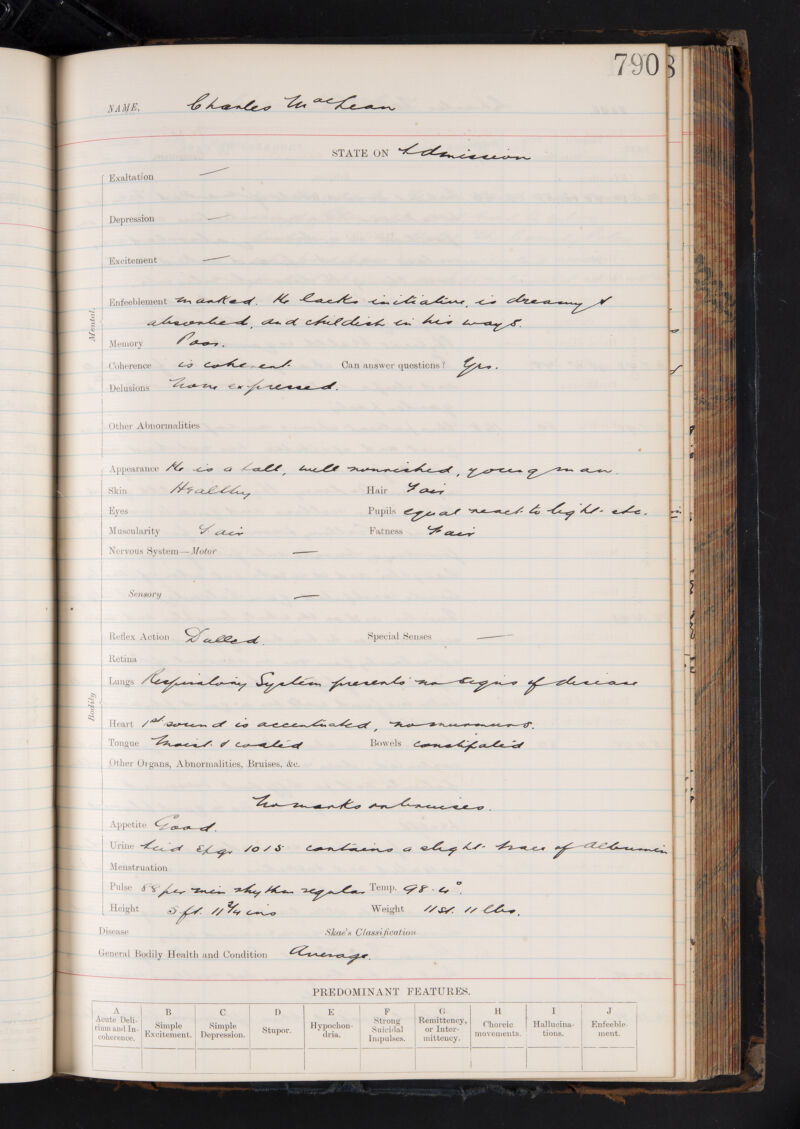 7903
NAME, Charles MacLean
STATE ON Admission
Mental.
Exaltation —
Depression —
Excitement —
Enfeeblement marked. He lacks initiative, is dreamy &
absorbed, and childish in his ways.
Memory Poor.
Coherence is coherent. Can answer questions? Yes.
Delusions None expressed.
Other Abnormalities
Bodily
Appearance He is a tall, well nourished, young man.
Skin Healthy Hair Fair
Eyes Pupils equal react to light etc.
Muscularity Fair Fatness Fair
Nervous System—Motor —
Sensory —
Reflex Action Dulled. Special Senses —
Retina
Lungs Respiratory System presents no signs of disease
Heart 1st sound is accentuated, no murmurs.
Tongue Moist & coated Bowels constipated
Other Organs, Abnormalities, Bruises, &c.
No marks or bruises.
Appetite Good.
Urine Acid Sp. gr. 1015 contains a slight trace of Albumin
Menstruation
Pulse 88 per min rhythm regular Temp. 98.4°.
Height 5 ft. 11 3/4 ins Weight 11 st. 11 lbs.
Disease Skae's Classification
General Bodily Health and Condition Average.
PREDOMINANT FEATURES.
A B C D E F G H I J
Acute Delirium and Incoherence. Simple Excitement. Simple Depression. Stupor. Hypochondria. Strong Suicidal Impulses. Remittency, or Intermittency. Choreic movements. Hallucinations. Enfeeblement.